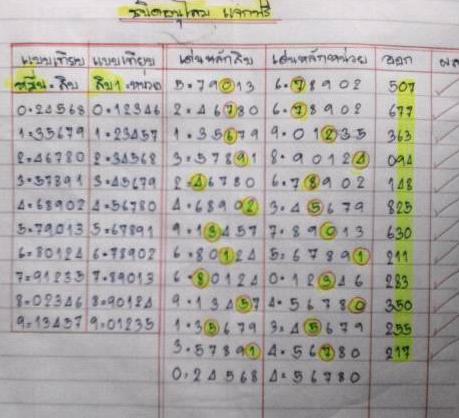 ชนิดอนุโลม แจกฟรี
แบบเทียบ แบบเทียบ เด่นหลักสิบ เด่นหลักหน่วย ออก ผล
สิบ สิบ หน่วย 5=79013 6=78902 507
0=24568 0=12346 2=46780 6=78902 677
1=35679 1=23457 1=35679 9=01235 363
2=46780 2=34568 3=57891 8=90124 094
3=57891 3=45679 2=46780 6=78902 148
4=68902 4=56780 4=68902 3=45679 825
5=79013 5=67891 9=13457 7=89013 630
6=80124 6=78902 6=80124 5=67891 211
7=91235 7=89013 6=80124 0=12346 283
8=02346 8=90124 9=13457 4=56780 350
9=13457 9=01235 1=35679 3=45679 255
3=57891 4=56780 217
0=24568 4=56780